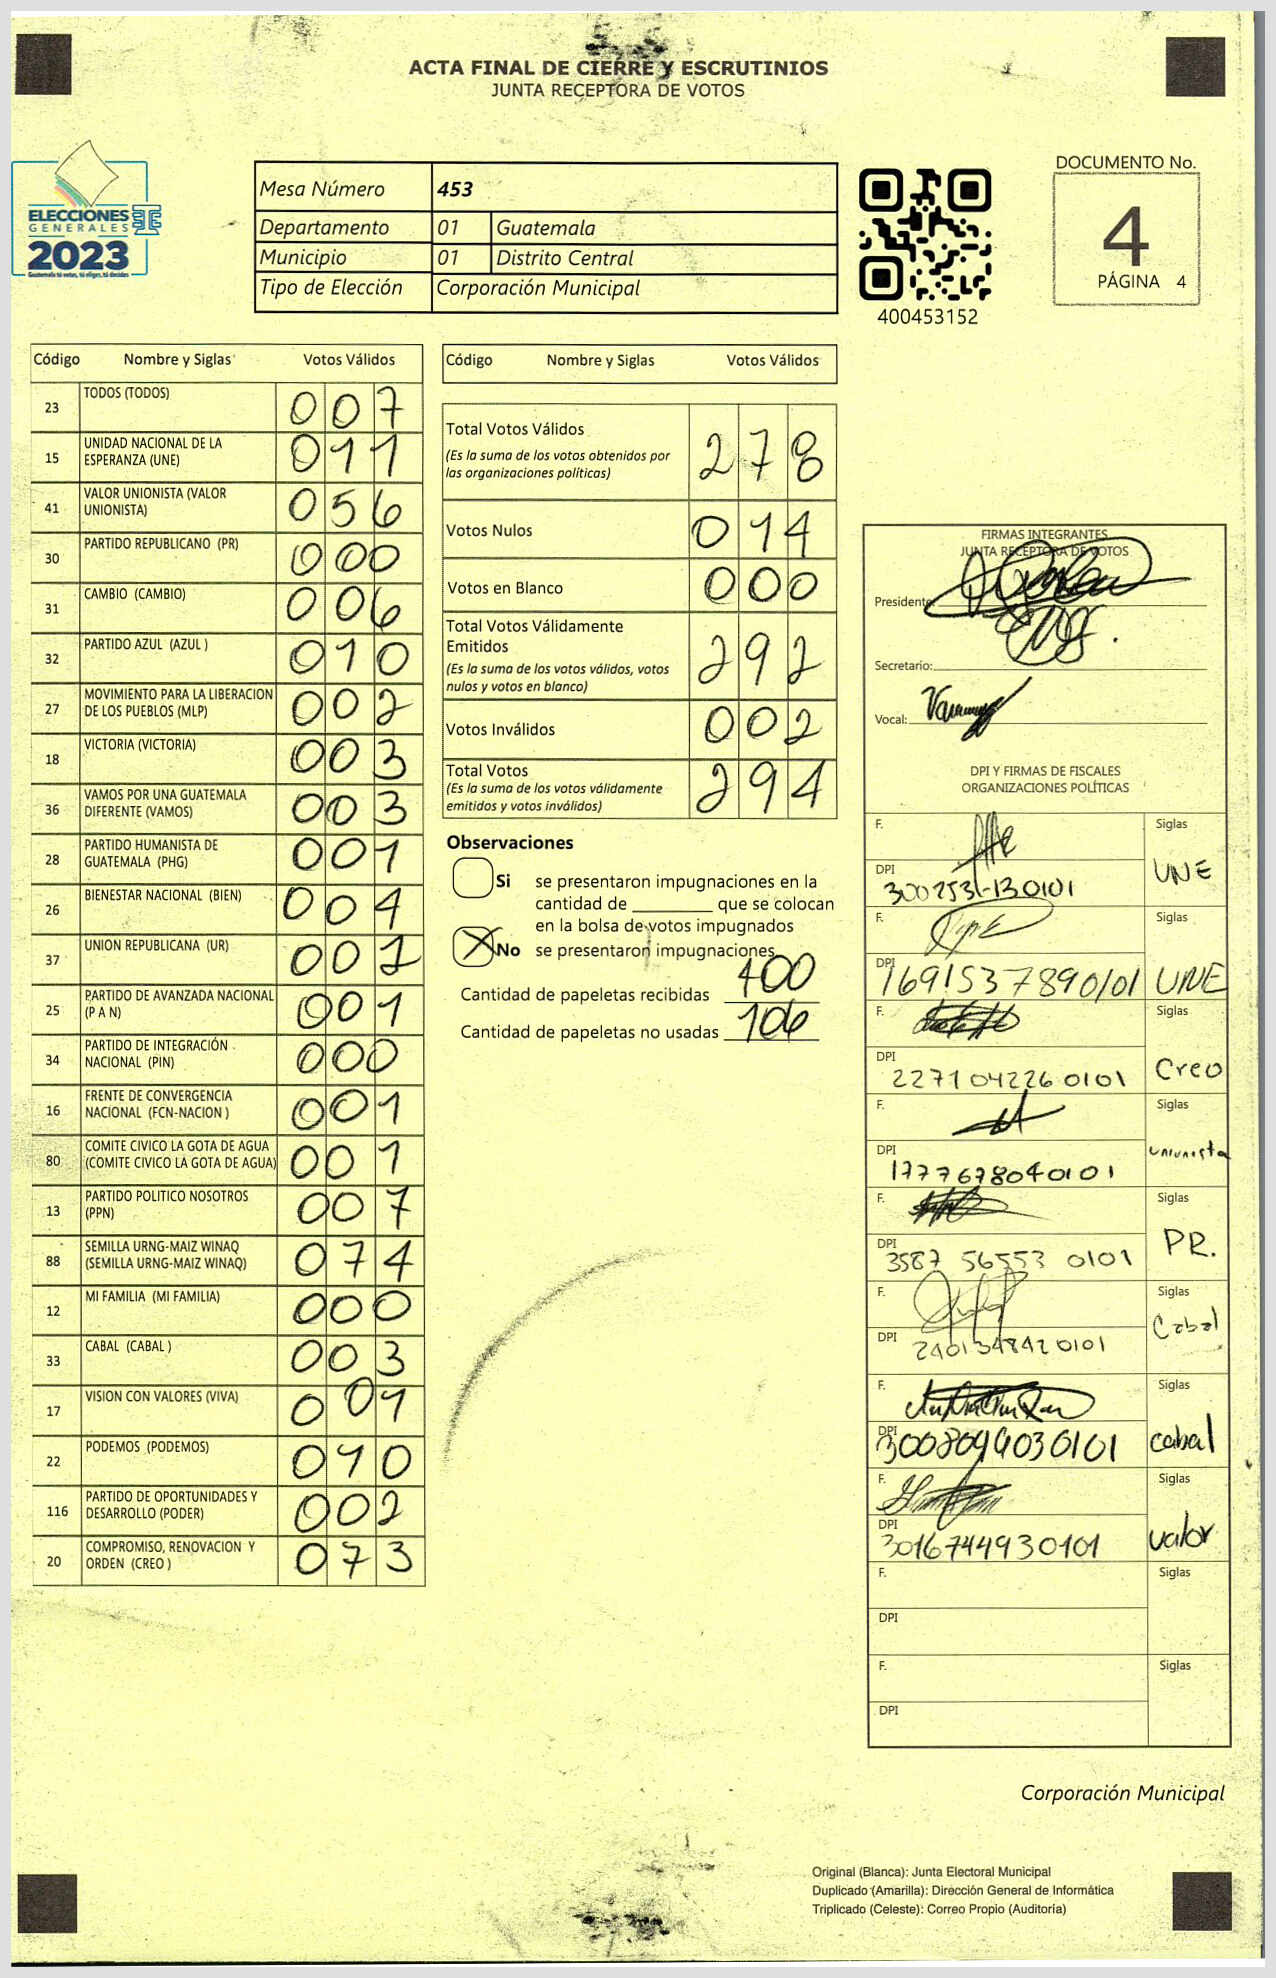 ACTA FINAL DE CIERRE Y ESCRUTINIOS
JUNTA RECEPTORA DE VOTOS
ELECCIONES
GENERALES
2023
Guatemala tú votas, tú eliges, tú decides
Mesa Número 453
Departamento 01 Guatemala
Municipio 01 Distrito Central
Tipo de Elección Corporación Municipal
400453152
DOCUMENTO No.
4
PÁGINA 4
Código Nombre y Siglas Votos Válidos
23 TODOS (TODOS) 007
15 UNIDAD NACIONAL DE LA ESPERANZA (UNE) 011
41 VALOR UNIONISTA (VALOR UNIONISTA) 056
30 PARTIDO REPUBLICANO (PR) 000
31 CAMBIO (CAMBIO) 006
32 PARTIDO AZUL (AZUL ) 010
27 MOVIMIENTO PARA LA LIBERACION DE LOS PUEBLOS (MLP) 002
18 VICTORIA (VICTORIA) 003
36 VAMOS POR UNA GUATEMALA DIFERENTE (VAMOS) 003
28 PARTIDO HUMANISTA DE GUATEMALA (PHG) 001
26 BIENESTAR NACIONAL (BIEN) 004
37 UNION REPUBLICANA (UR) 002
25 PARTIDO DE AVANZADA NACIONAL (P A N) 001
34 PARTIDO DE INTEGRACIÓN NACIONAL (PIN) 000
16 FRENTE DE CONVERGENCIA NACIONAL (FCN-NACION ) 001
80 COMITE CIVICO LA GOTA DE AGUA (COMITE CIVICO LA GOTA DE AGUA) 001
13 PARTIDO POLITICO NOSOTROS (PPN) 007
88 SEMILLA URNG-MAIZ WINAQ (SEMILLA URNG-MAIZ WINAQ) 074
12 MI FAMILIA (MI FAMILIA) 000
33 CABAL (CABAL ) 003
17 VISION CON VALORES (VIVA) 001
22 PODEMOS (PODEMOS) 010
116 PARTIDO DE OPORTUNIDADES Y DESARROLLO (PODER) 002
20 COMPROMISO, RENOVACION Y ORDEN (CREO ) 073
Código Nombre y Siglas Votos Válidos
Total Votos Válidos 278
(Es la suma de los votos obtenidos por
las organizaciones políticas)
Votos Nulos 014
Votos en Blanco 000
Total Votos Válidamente
Emitidos 292
(Es la suma de los votos válidos, votos
nulos y votos en blanco)
Votos Inválidos 002
Total Votos 294
(Es la suma de los votos válidamente
emitidos y votos inválidos)
Observaciones
Si se presentaron impugnaciones en la
cantidad de ________ que se colocan
en la bolsa de votos impugnados
X No se presentaron impugnaciones
Cantidad de papeletas recibidas 400
Cantidad de papeletas no usadas 106
FIRMAS INTEGRANTES
JUNTA RECEPTORA DE VOTOS
Presidente:
Secretario:
Vocal:
DPI Y FIRMAS DE FISCALES
ORGANIZACIONES POLÍTICAS
F. Siglas
DPI 3002531-130101 UNE
F. Siglas
DPI 1691537890101 UNE
F. Siglas
DPI 2271042260101 Creo
F. Siglas
DPI 1777678040101 unionista
F. Siglas
DPI 3587 56553 0101 PR.
F. Siglas
DPI 2401348420101 Cabal
F. Siglas
DPI 3008099030101 cabal
F. Siglas
DPI 3016744930101 valor
F. Siglas
DPI
F. Siglas
DPI
Corporación Municipal
Original (Blanca): Junta Electoral Municipal
Duplicado (Amarilla): Dirección General de Informática
Triplicado (Celeste): Correo Propio (Auditoría)